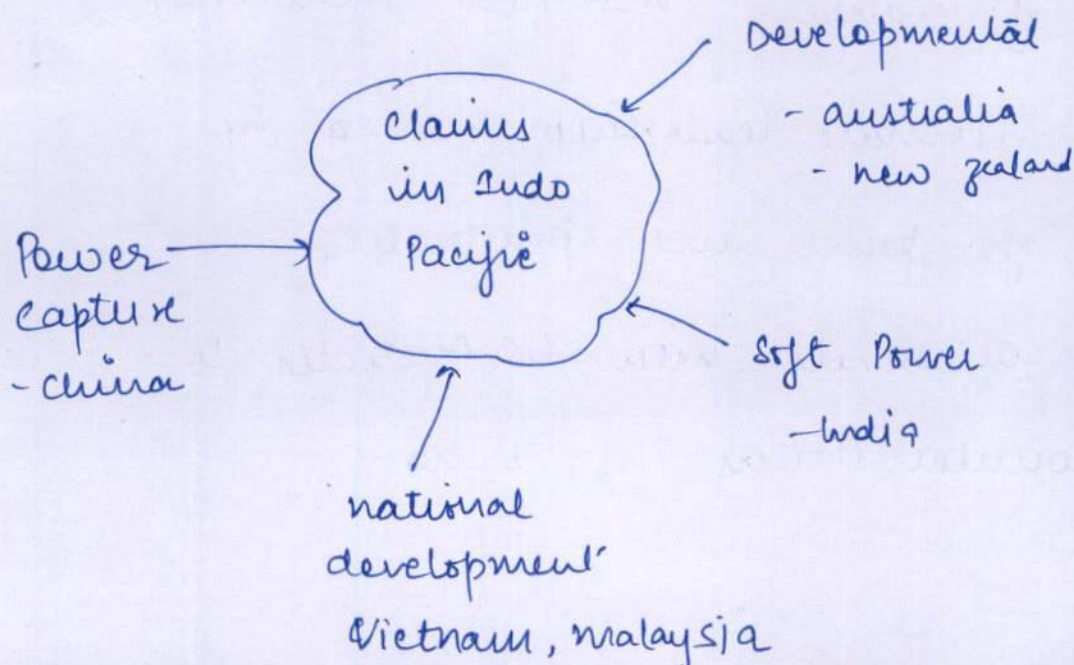 Developmental
- australia
- new zealand
Claims
in Indo
Pacific
Power
capture
- China
Soft Power
- India
national
development
Vietnam, malaysia